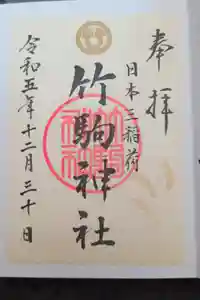 奉拝
日本三稲荷
竹駒神社
令和五年十二月三十日